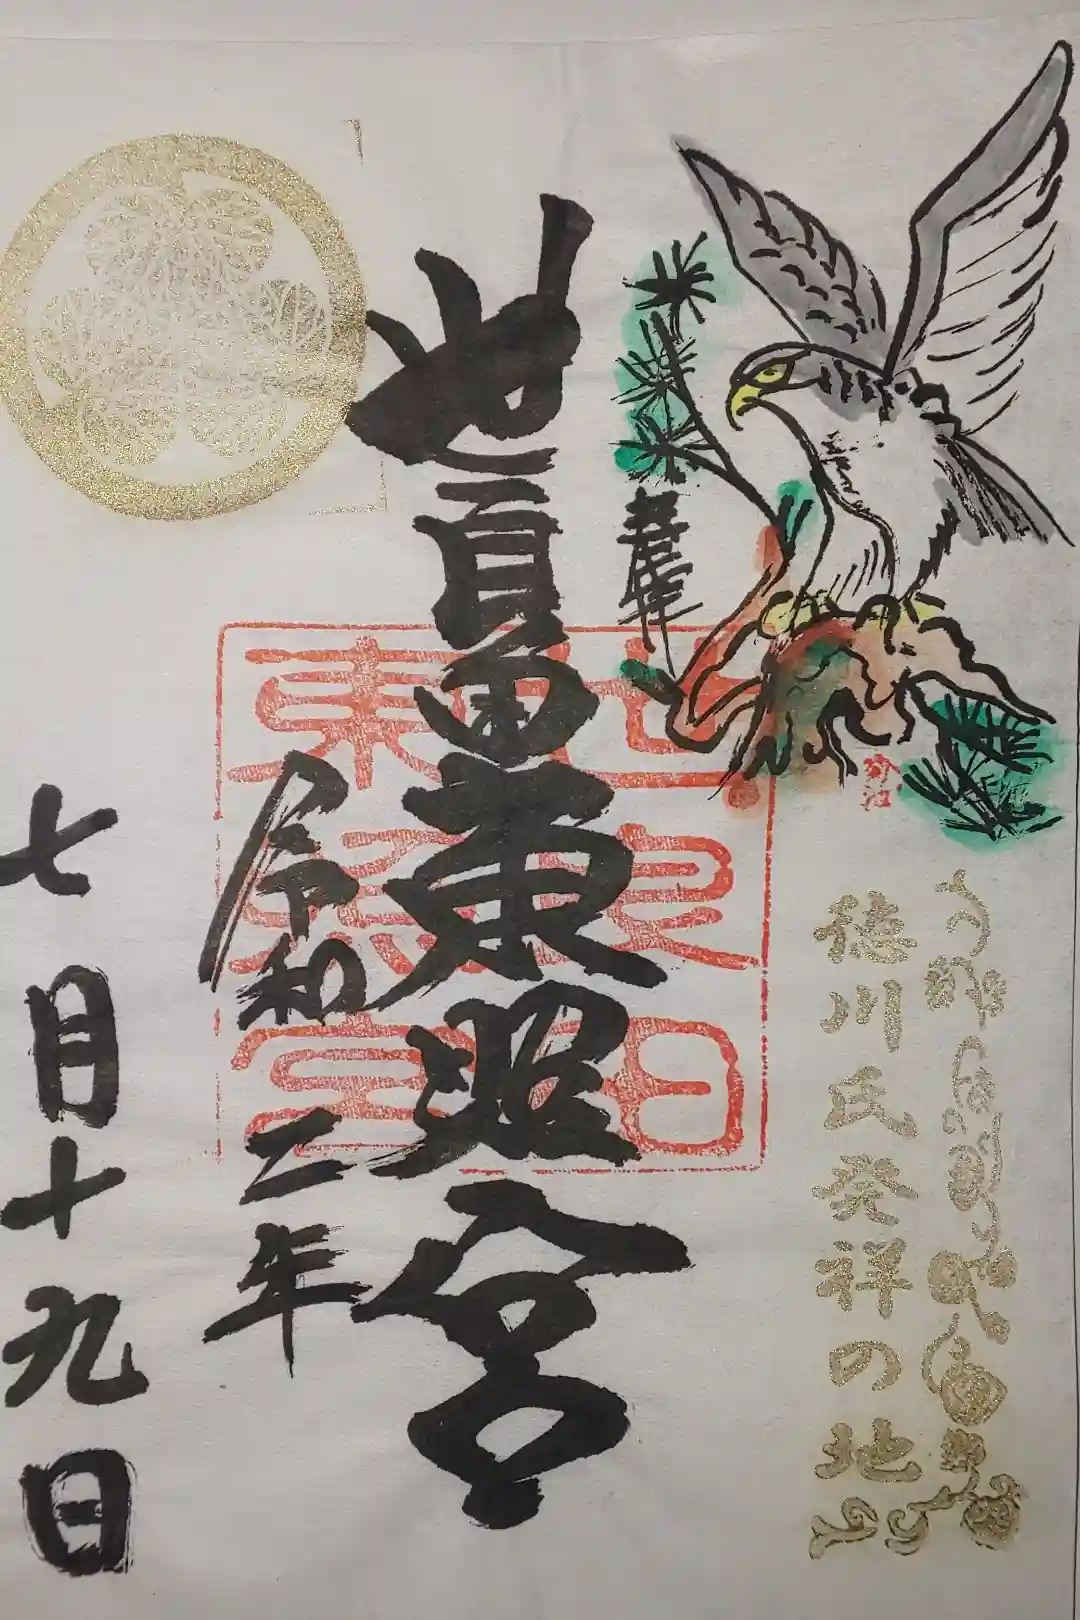 奉拝
徳川氏発祥の地
世良田東照宮
世良田東照宮
令和二年
七月十九日